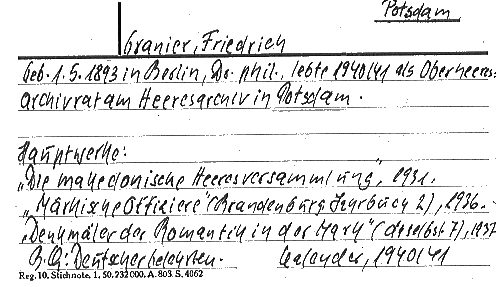 Potsdam
Granier, Friedrich
Geb. 1.5.1893 in Berlin, Dr. phil., lebte 1940/41 als Oberheeres-
archivrat am Heeresarchiv in Potsdam.
Hauptwerke:
„Die makedonische Heeresversammlung", 1931.
„Märkische Offiziere" (Brandenburg. Jahrbuch 2), 1936.
„Denkmäler der Romantik in der Mark" (daselbst 7), 1937
B.Q.: Deutscher Gelehrten. Kalender, 1940/41
Reg. 10. Stichnote. 1. 50. 232 000. A. 803 S. 4062